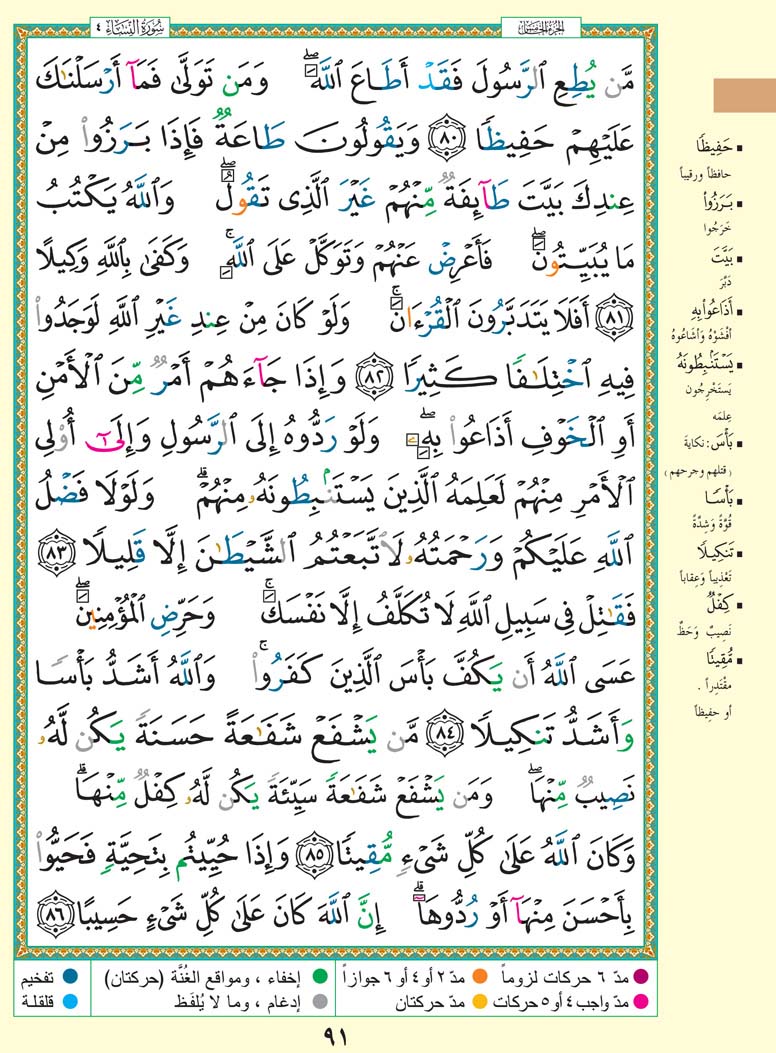 سُورَةُ النِّسَاءِ ٤
الجُزءُ الخَامِسُ
مَّن يُطِعِ ٱلرَّسُولَ فَقَدْ أَطَاعَ ٱللَّهَ ۖ وَمَن تَوَلَّىٰ فَمَآ أَرْسَلْنَـٰكَ
عَلَيْهِمْ حَفِيظًا ۝٨٠ وَيَقُولُونَ طَاعَةٌ فَإِذَا بَرَزُوا۟ مِنْ
عِندِكَ بَيَّتَ طَآئِفَةٌ مِّنْهُمْ غَيْرَ ٱلَّذِى تَقُولُ ۖ وَٱللَّهُ يَكْتُبُ
مَا يُبَيِّتُونَ ۖ فَأَعْرِضْ عَنْهُمْ وَتَوَكَّلْ عَلَى ٱللَّهِ ۚ وَكَفَىٰ بِٱللَّهِ وَكِيلًا
۝٨١ أَفَلَا يَتَدَبَّرُونَ ٱلْقُرْءَانَ ۚ وَلَوْ كَانَ مِنْ عِندِ غَيْرِ ٱللَّهِ لَوَجَدُوا۟
فِيهِ ٱخْتِلَـٰفًا كَثِيرًا ۝٨٢ وَإِذَا جَآءَهُمْ أَمْرٌ مِّنَ ٱلْأَمْنِ
أَوِ ٱلْخَوْفِ أَذَاعُوا۟ بِهِۦ ۖ وَلَوْ رَدُّوهُ إِلَى ٱلرَّسُولِ وَإِلَىٰٓ أُو۟لِى
ٱلْأَمْرِ مِنْهُمْ لَعَلِمَهُ ٱلَّذِينَ يَسْتَنۢبِطُونَهُۥ مِنْهُمْ ۗ وَلَوْلَا فَضْلُ
ٱللَّهِ عَلَيْكُمْ وَرَحْمَتُهُۥ لَٱتَّبَعْتُمُ ٱلشَّيْطَـٰنَ إِلَّا قَلِيلًا ۝٨٣
فَقَـٰتِلْ فِى سَبِيلِ ٱللَّهِ لَا تُكَلَّفُ إِلَّا نَفْسَكَ ۚ وَحَرِّضِ ٱلْمُؤْمِنِينَ ۖ
عَسَى ٱللَّهُ أَن يَكُفَّ بَأْسَ ٱلَّذِينَ كَفَرُوا۟ ۚ وَٱللَّهُ أَشَدُّ بَأْسًا
وَأَشَدُّ تَنكِيلًا ۝٨٤ مَّن يَشْفَعْ شَفَـٰعَةً حَسَنَةً يَكُن لَّهُۥ
نَصِيبٌ مِّنْهَا ۖ وَمَن يَشْفَعْ شَفَـٰعَةً سَيِّئَةً يَكُن لَّهُۥ كِفْلٌ مِّنْهَا ۗ
وَكَانَ ٱللَّهُ عَلَىٰ كُلِّ شَىْءٍ مُّقِيتًا ۝٨٥ وَإِذَا حُيِّيتُم بِتَحِيَّةٍ فَحَيُّوا۟
بِأَحْسَنَ مِنْهَآ أَوْ رُدُّوهَآ ۗ إِنَّ ٱللَّهَ كَانَ عَلَىٰ كُلِّ شَىْءٍ حَسِيبًا ۝٨٦
▪ حَفِيظًا
حافظاً ورقيباً
▪ بَرَزُوا۟
خَرَجُوا
▪ بَيَّتَ
دَبَّرَ
▪ أَذَاعُوا۟ بِهِ
أفْشَوْهُ وَأشَاعُوهُ
▪ يَسْتَنۢبِطُونَهُ
يَستَخْرِجُون
عِلمَه
▪ بَأْسَ: نكايةَ
(قتلهم وجرحهم)
▪ بَأْسًا
قُوَّةً وَشِدَّةً
▪ تَنكِيلًا
تَعْذِيباً وَعِقاباً
▪ كِفْلٌ
نَصِيبٌ وَحَظٌّ
▪ مُّقِيتًا
مقْتَدِراً .
أو حفيظاً
مدّ ٦ حركات لزوماً مدّ ٢ أو ٤ أو ٦ جوازاً إخفاء ، ومواقع الغُنَّة (حركتان) تفخيم
مدّ واجب ٤ أو ٥ حركات مدّ حركتان إدغام ، وما لا يُلفَظ قلقلة
٩١